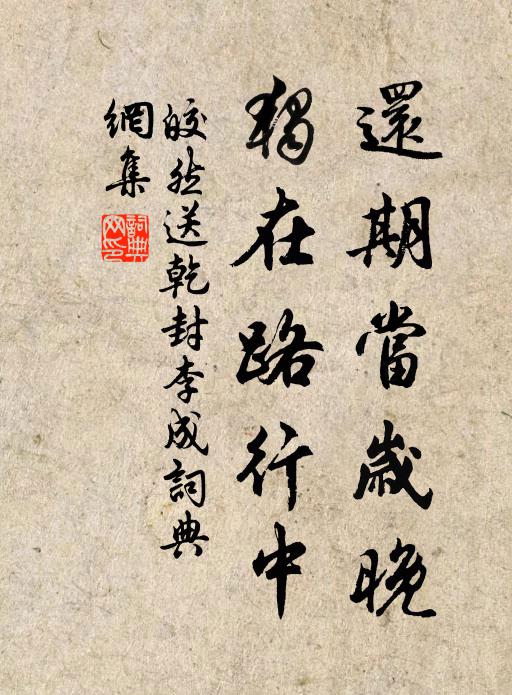 還期當歲晚
獨在路行中
皎然送乾封李成詞典
網集
詞典
网印